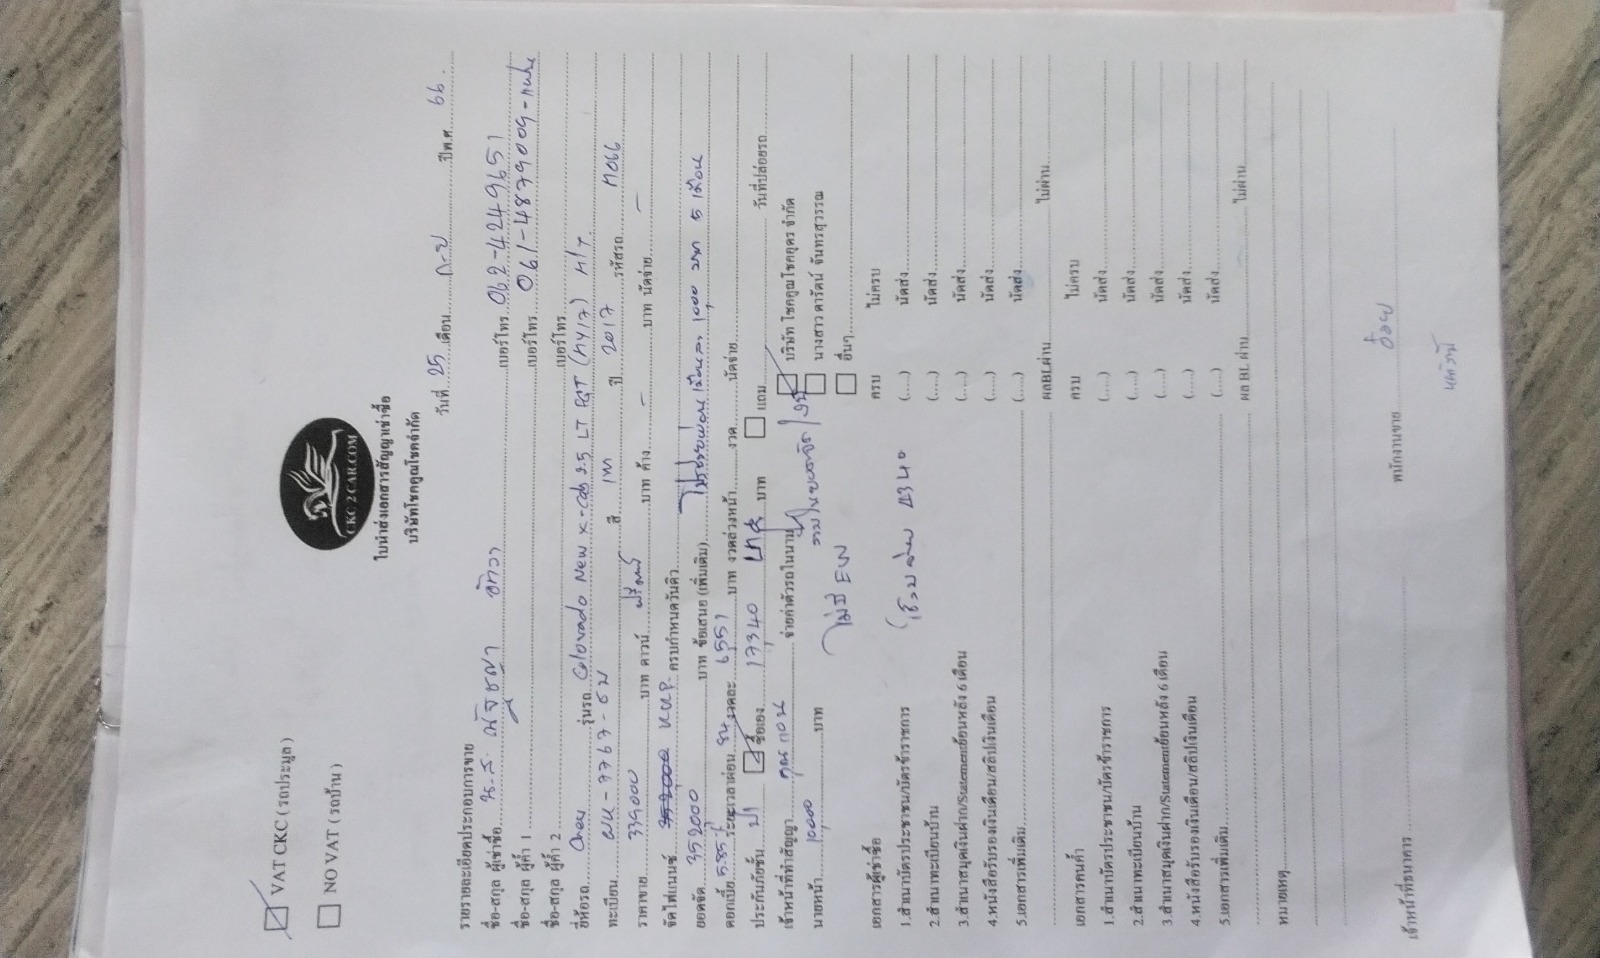 ☑ VAT CKC ( รถประมูล )
☐ NO VAT ( รถบ้าน )
CKC 2 CAR.COM
ใบนำส่งเอกสารสัญญาเช่าซื้อ
บริษัทโชคคูณโชคจำกัด
วันที่ 25 เดือน ก-ย ปีพ.ศ. 66
รายรายละเอียดประกอบการขาย
ชื่อ-สกุล ผู้เช่าซื้อ น.ส. เบอร์โทร 062-4249651
ชื่อ-สกุล ผู้ค้ำ 1 เบอร์โทร 061-4879009
ชื่อ-สกุล ผู้ค้ำ 2 เบอร์โทร
ยี่ห้อรถ Chev รุ่นรถ Colorado New X-Cab 2.5 LT (MY17) M/T
ทะเบียน 7767 สี เทา ปี 2017 รหัสรถ M066
ราคาขาย 339000 บาท ดาวน์ บาท ค้าง - บาท นัดจ่าย -
จัดไฟแนนซ์ KKP ครบกำหนดวันคิว
ยอดจัด 352000 บาท ข้อเสนอ (เพิ่มเติม) เดือนละ 1,000 บาท 5 เดือน
ดอกเบี้ย 5.85 ระยะเวลาผ่อน งวดละ 6,551 บาท งวดล่วงหน้า งวด นัดจ่าย
ประกันภัยชั้น ป1 ☑ ซื้อเอง 17,340 บาท ☐ แถม วันที่ปล่อยรถ
เจ้าหน้าที่ทำสัญญา จ่ายค่าตัวรถในนาม ☑ บริษัท โชคคูณโชคคูคร จำกัด
นายหน้า 10,000 บาท ☐ นางสาว ดารัตน์ จันทรสุวรรณ
☐ อื่นๆ
ไม่มี EW
เอกสารผู้เช่าซื้อ ครบ ไม่ครบ
1.สำเนาบัตรประชาชน/บัตรข้าราชการ (....) นัดส่ง
2.สำเนาทะเบียนบ้าน (....) นัดส่ง
3.สำเนาสมุดเงินฝาก/Statementย้อนหลัง 6 เดือน (....) นัดส่ง
4.หนังสือรับรองเงินเดือน/สลิปเงินเดือน (....) นัดส่ง
5.เอกสารเพิ่มเติม (....) นัดส่ง
ผลBLผ่าน ไม่ผ่าน
เอกสารคนค้ำ ครบ ไม่ครบ
1.สำเนาบัตรประชาชน/บัตรข้าราชการ (....) นัดส่ง
2.สำเนาทะเบียนบ้าน (....) นัดส่ง
3.สำเนาสมุดเงินฝาก/Statementย้อนหลัง 6 เดือน (....) นัดส่ง
4.หนังสือรับรองเงินเดือน/สลิปเงินเดือน (....) นัดส่ง
5.เอกสารเพิ่มเติม (....) นัดส่ง
ผล BL ผ่าน ไม่ผ่าน
หมายเหตุ
เจ้าหน้าที่ธนาคาร พนักงานขาย อ้อย